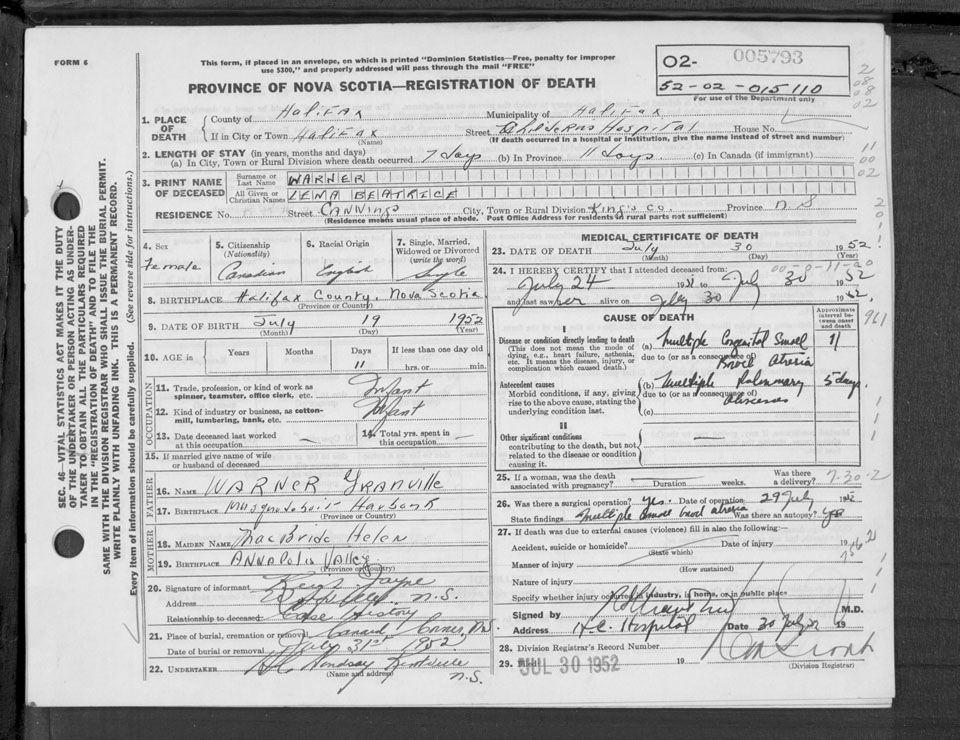 FORM 6
This form, if placed in an envelope, on which is printed "Dominion Statistics—Free, penalty for improper
use $300," and properly addressed will pass through the mail "FREE"
PROVINCE OF NOVA SCOTIA—REGISTRATION OF DEATH
02- 005793
52-02-015110
For use of the Department only
1. PLACE OF DEATH
County of Halifax Municipality of Halifax
If in City or Town Halifax Street Childrens Hospital House No.
(Name) (If death occurred in a hospital or institution, give the name instead of street and number)
2. LENGTH OF STAY (in years, months and days)
(a) In City, Town or Rural Division where death occurred 7 days (b) In Province 11 days. (c) In Canada (if immigrant)
3. PRINT NAME OF DECEASED
Surname or Last Name WARNER
All Given or Christian Names LEMA BEATRICE
RESIDENCE No. Street CANNING City, Town or Rural Division King's Co. Province N.S
(Residence means usual place of abode. Post Office Address for residents in rural parts not sufficient)
4. Sex
Female
5. Citizenship
(Nationality)
Canadian
6. Racial Origin
English
7. Single, Married, Widowed or Divorced
(write the word)
Single
8. BIRTHPLACE Halifax County, Nova Scotia
(Province or Country)
9. DATE OF BIRTH July 19 1952
(Month) (Day) (Year)
10. AGE in Years Months Days If less than one day old
11 hrs. or min.
OCCUPATION
11. Trade, profession, or kind of work as
spinner, teamster, office clerk, etc. Infant
12. Kind of industry or business, as cotton-
mill, lumbering, bank, etc. Infant
13. Date deceased last worked
at this occupation —
14. Total yrs. spent in
this occupation —
15. If married give name of wife
or husband of deceased
FATHER
16. NAME WARNER Granville
17. BIRTHPLACE Musquodoboit Harbour
(Province or Country)
MOTHER
18. MAIDEN NAME MacBride Helen
19. BIRTHPLACE ANNAPOLIS Valley
(Province or Country)
20. Signature of informant
Address N.S.
Relationship to deceased Case History
21. Place of burial, cremation or removal Canard Corner, N.S.
Date of burial or removal July 31st 1952
22. UNDERTAKER Lindsay Kentville
(Name and address) N.S.
MEDICAL CERTIFICATE OF DEATH
23. DATE OF DEATH July 30 1952
(Month) (Day)
24. I HEREBY CERTIFY that I attended deceased from:
July 24 19 to July 30 1952
and last saw her alive on July 30 19
CAUSE OF DEATH
Approximate interval between onset and death
I
Disease or condition directly leading to death
(This does not mean the mode of
dying, e.g., heart failure, asthenia,
etc. It means the disease, injury, or
complication which caused death.)
(a) Multiple Congenital Small 11
due to (or as a consequence of) Bowel Atresia
Antecedent causes
Morbid conditions, if any, giving
rise to the above cause, stating the
underlying condition last.
(b) Multiple Pulmonary 5 days.
due to (or as a consequence of) Abscesses
(c)
II
Other significant conditions
contributing to the death, but not
related to the disease or condition
causing it. —
25. If a woman, was the death
associated with pregnancy? Duration weeks. Was there a delivery?
7-30-2
26. Was there a surgical operation? Yes. Date of operation 29 July 19
State findings Multiple small bowel atresia Was there an autopsy? Yes
27. If death was due to external causes (violence) fill in also the following:—
Accident, suicide or homicide? Date of injury 19
(State which)
Manner of injury
(How sustained)
Nature of injury
Specify whether injury occurred in industry, in home, or in public place
Signed by M.D.
Address H.C. Hospital Date 30 July 52 19
28. Division Registrar's Record Number
29. JUL 30 1952 19
(Division Registrar)
SEC. 46—VITAL STATISTICS ACT MAKES IT THE DUTY
OF THE UNDERTAKER OR PERSON ACTING AS UNDER-
TAKER TO OBTAIN ALL THE PARTICULARS REQUIRED
IN THE "REGISTRATION OF DEATH" AND TO FILE THE
SAME WITH THE DIVISION REGISTRAR WHO SHALL ISSUE THE BURIAL PERMIT.
WRITE PLAINLY WITH UNFADING INK. THIS IS A PERMANENT RECORD.
Every item of information should be carefully supplied. (See reverse side for instructions.)